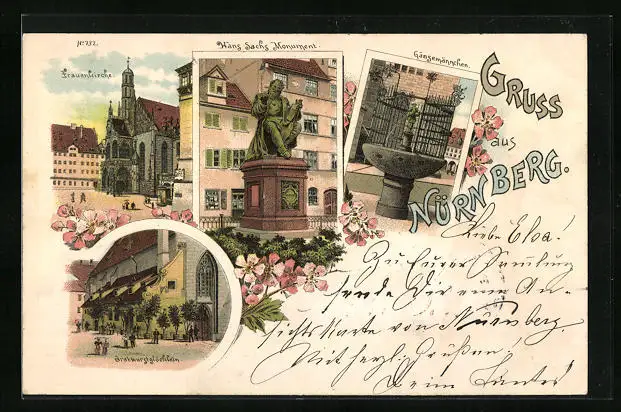 No. 232.
Frauenkirche
Hans Sachs Monument.
Gänsemännchen.
Gruss
aus
Nürnberg.
Bratwurstglöcklein
Liebe Elsa!
Zu Eurer Samlung
sende Dir eine An-
sichtskarte von Nürnberg.
Mit herzl. Grüßen,
Deine Tante!